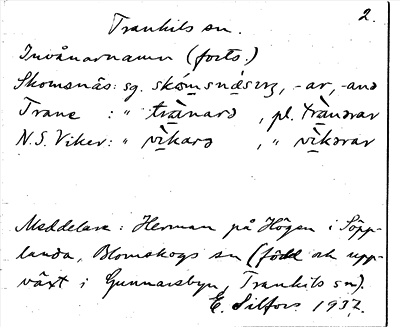 2.
Trankils sn.
Invånarnamn (forts.)
Skomsnäs: sg. skómsnásırz, -ar, -ana
Trane : " trànarə , pl. trànərar
N.S. Viker: " vìkarə , " vìkərar
Meddelare: Herman på Högen i Söpp-
landa, Blomskogs sn (född och upp-
växt i Gunnarsbyn, Trankils sn).
E. Silfors 1937.